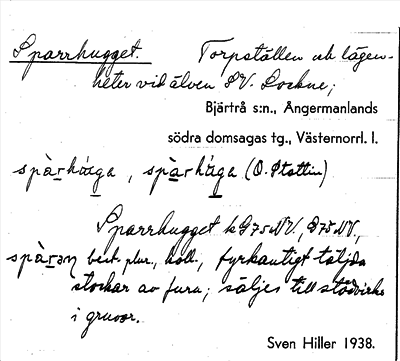 Sparrhugget. Torpställen och lägen-
heter vid älven SV. Lockne;
Bjärtrå s:n., Ångermanlands
södra domsagas tg., Västernorrl. l.
spàr , spàr (O. Stattin)
Sparrhugget k G75NV, D75NV,
best. plur., koll., fyrkantigt täljda
stockar av furu; säljes till stödvirke
i gruvor.
Sven Hiller 1938.